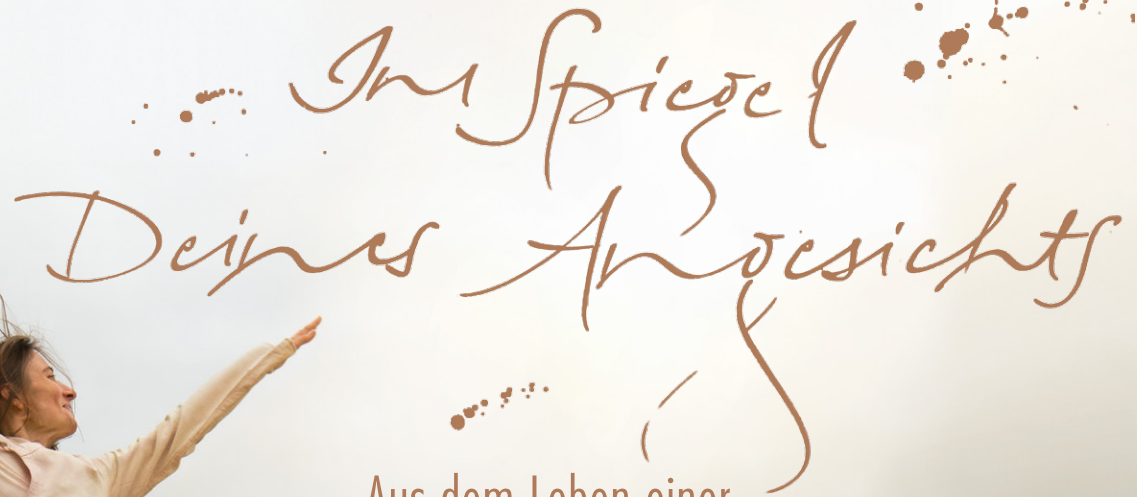 Im Spiegel
Deines Angesichts
Aus dem Leben einer